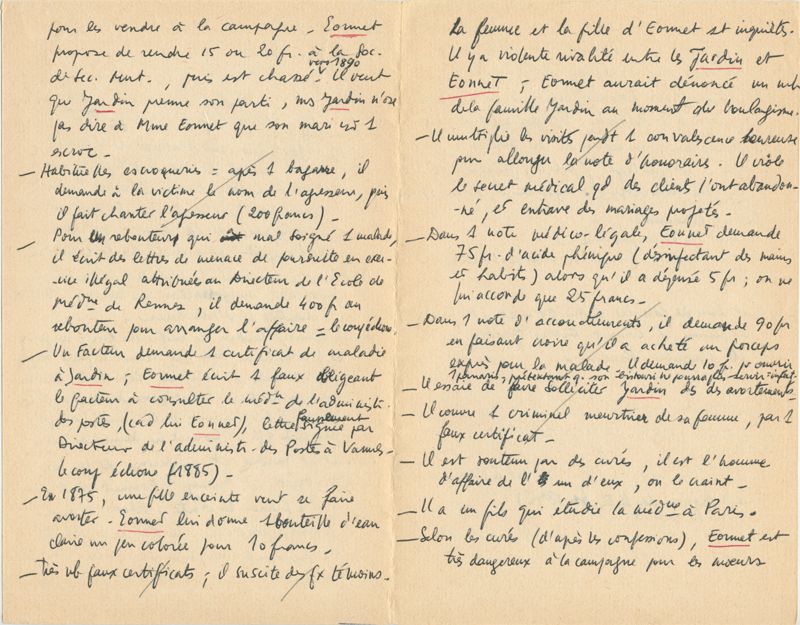 pour les vendre à la campagne - Eonnet
propose de rendre 15 ou 20 fr. à la Soc.
de Sec. Mut., puis est chassé vers 1890 - Il veut
que Jardin prenne son parti, ms Jardin n'ose
pas dire à Mme Eonnet que son mari est 1
escroc -
— Habituelles escroqueries = après 1 bagarre, il
demande à la victime le nom de l'agresseur, puis
il fait chanter l'agresseur (200 francs) -
— Pour un rebouteur qui mal soigné 1 malade,
il écrit des lettres de menace de poursuite en exer-
cice illégal attribuées au Directeur de l'Ecole de
médne de Rennes, il demande 400 fr au
rebouteur pour arranger l'affaire = le coup échoue.
— Un Facteur demande 1 certificat de maladie
à Jardin ; Eonnet écrit 1 faux obligeant
le facteur à consulter le médn de l'administ.
des postes, (càd lui Eonnet), lettre faussement signée par
Directeur de l'administ. des Postes à Vannes -
le coup échoue (1885) -
— En 1875, une fille enceinte veut se faire
avorter - Eonnet lui donne 1 bouteille d'eau
claire un peu colorée pour 10 francs -
— Très nb faux certificats ; il suscite des fx témoins -
La femme et la fille d'Eonnet st inquiètes.
Il y a violente rivalité entre les Jardin et
Eonnet ; Eonnet aurait dénoncé un mb
de la famille Jardin au moment du boulangisme.
— Il multiplie les visites pendt 1 convalescence heureuse
pour allonger la note d'honoraires. Il viole
le secret médical qd des clients l'ont abandon-
-né, et entrave des mariages projetés.
— Dans 1 note médico-légale, Eonnet demande
75 fr. d'acide phénique (désinfectant des mains
et habits) alors qu'il a dépensé 5 fr ; on ne
lui accorde que 25 francs -
— Dans 1 note d'accouchements, il demande 90 fr
en faisant croire qu'il a acheté un forceps
exprès pour la malade. Il demande 10 fr. pr ouvrir
1 panaris, prétextant q. son bistouri ne pourra plus servir
— Il essaie de faire solliciter Jardin des avortements
— Il couvre 1 criminel meurtrier de sa femme, par 1
faux certificat -
— Il est soutenu par des curés, il est l'homme
d'affaire de l'un d'eux, on le craint -
— Il a un fils qui étudie la médne à Paris.
— Selon les curés (d'après les confessions), Eonnet est
très dangereux à la campagne pour les moeurs